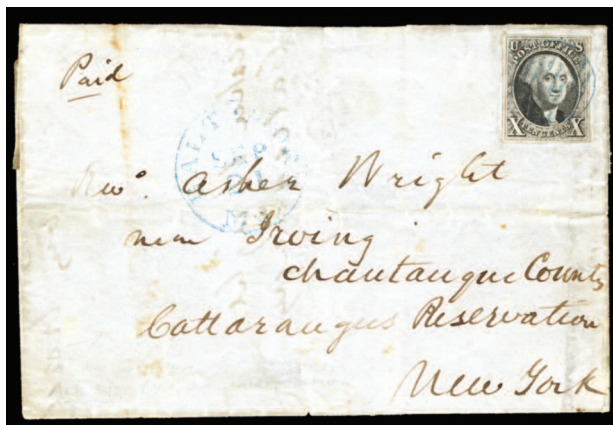 U S
POST OFFICE
X TEN CENTS X
Paid
Revd. Asher Wright
near Irving
Chautauque County
Cattaraugus Reservation
New York